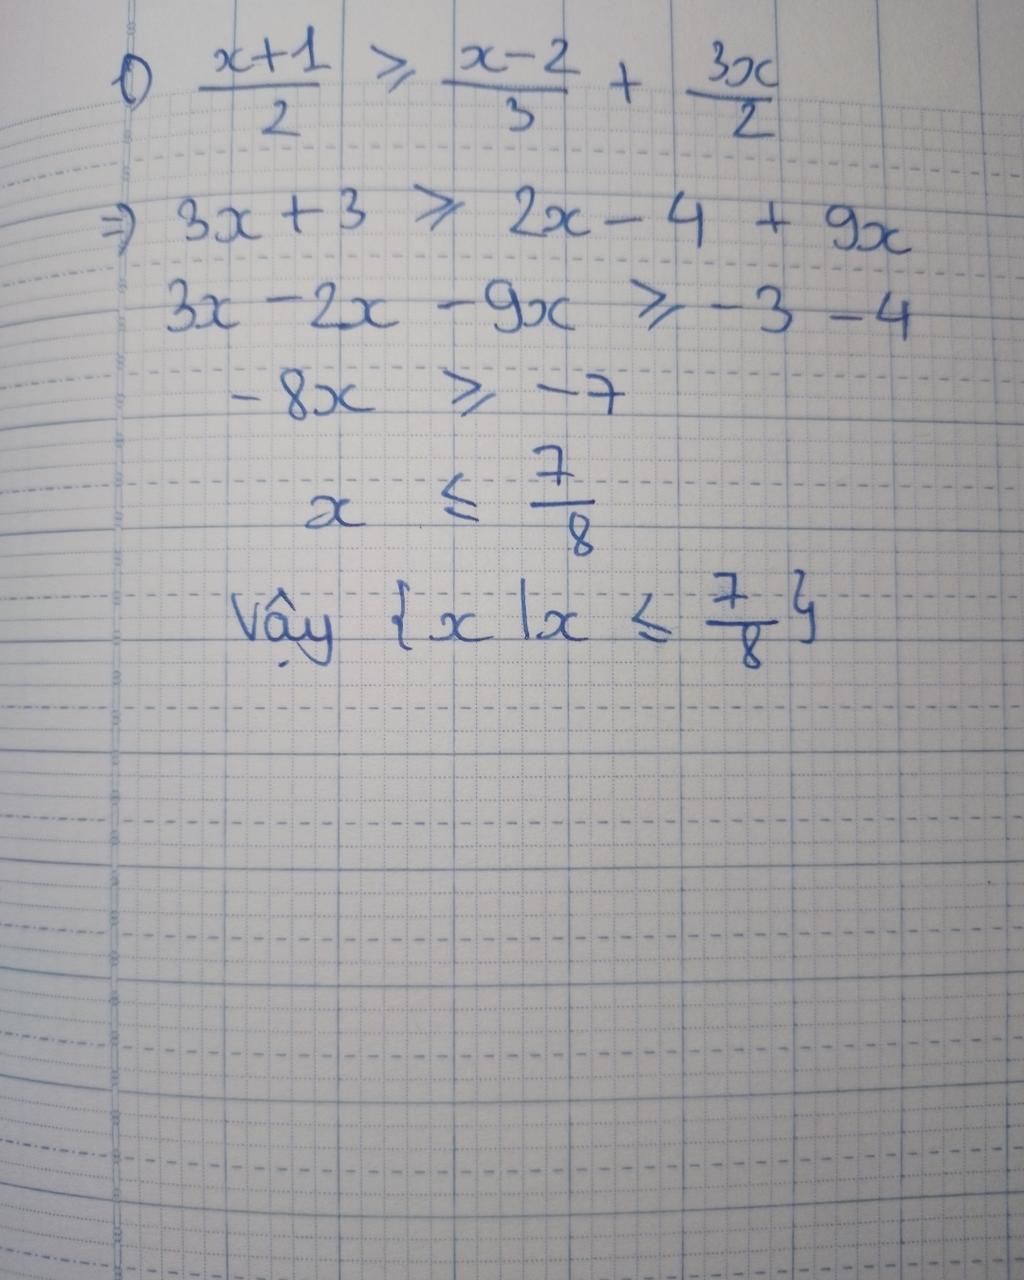 1) \frac{x+1}{2} ⩾ \frac{x-2}{3} + \frac{3x}{2}
⇒ 3x + 3 ⩾ 2x - 4 + 9x
3x - 2x - 9x ⩾ -3 - 4
-8x ⩾ -7
x ≤ \frac{7}{8}
Vậy {x | x ≤ \frac{7}{8}}